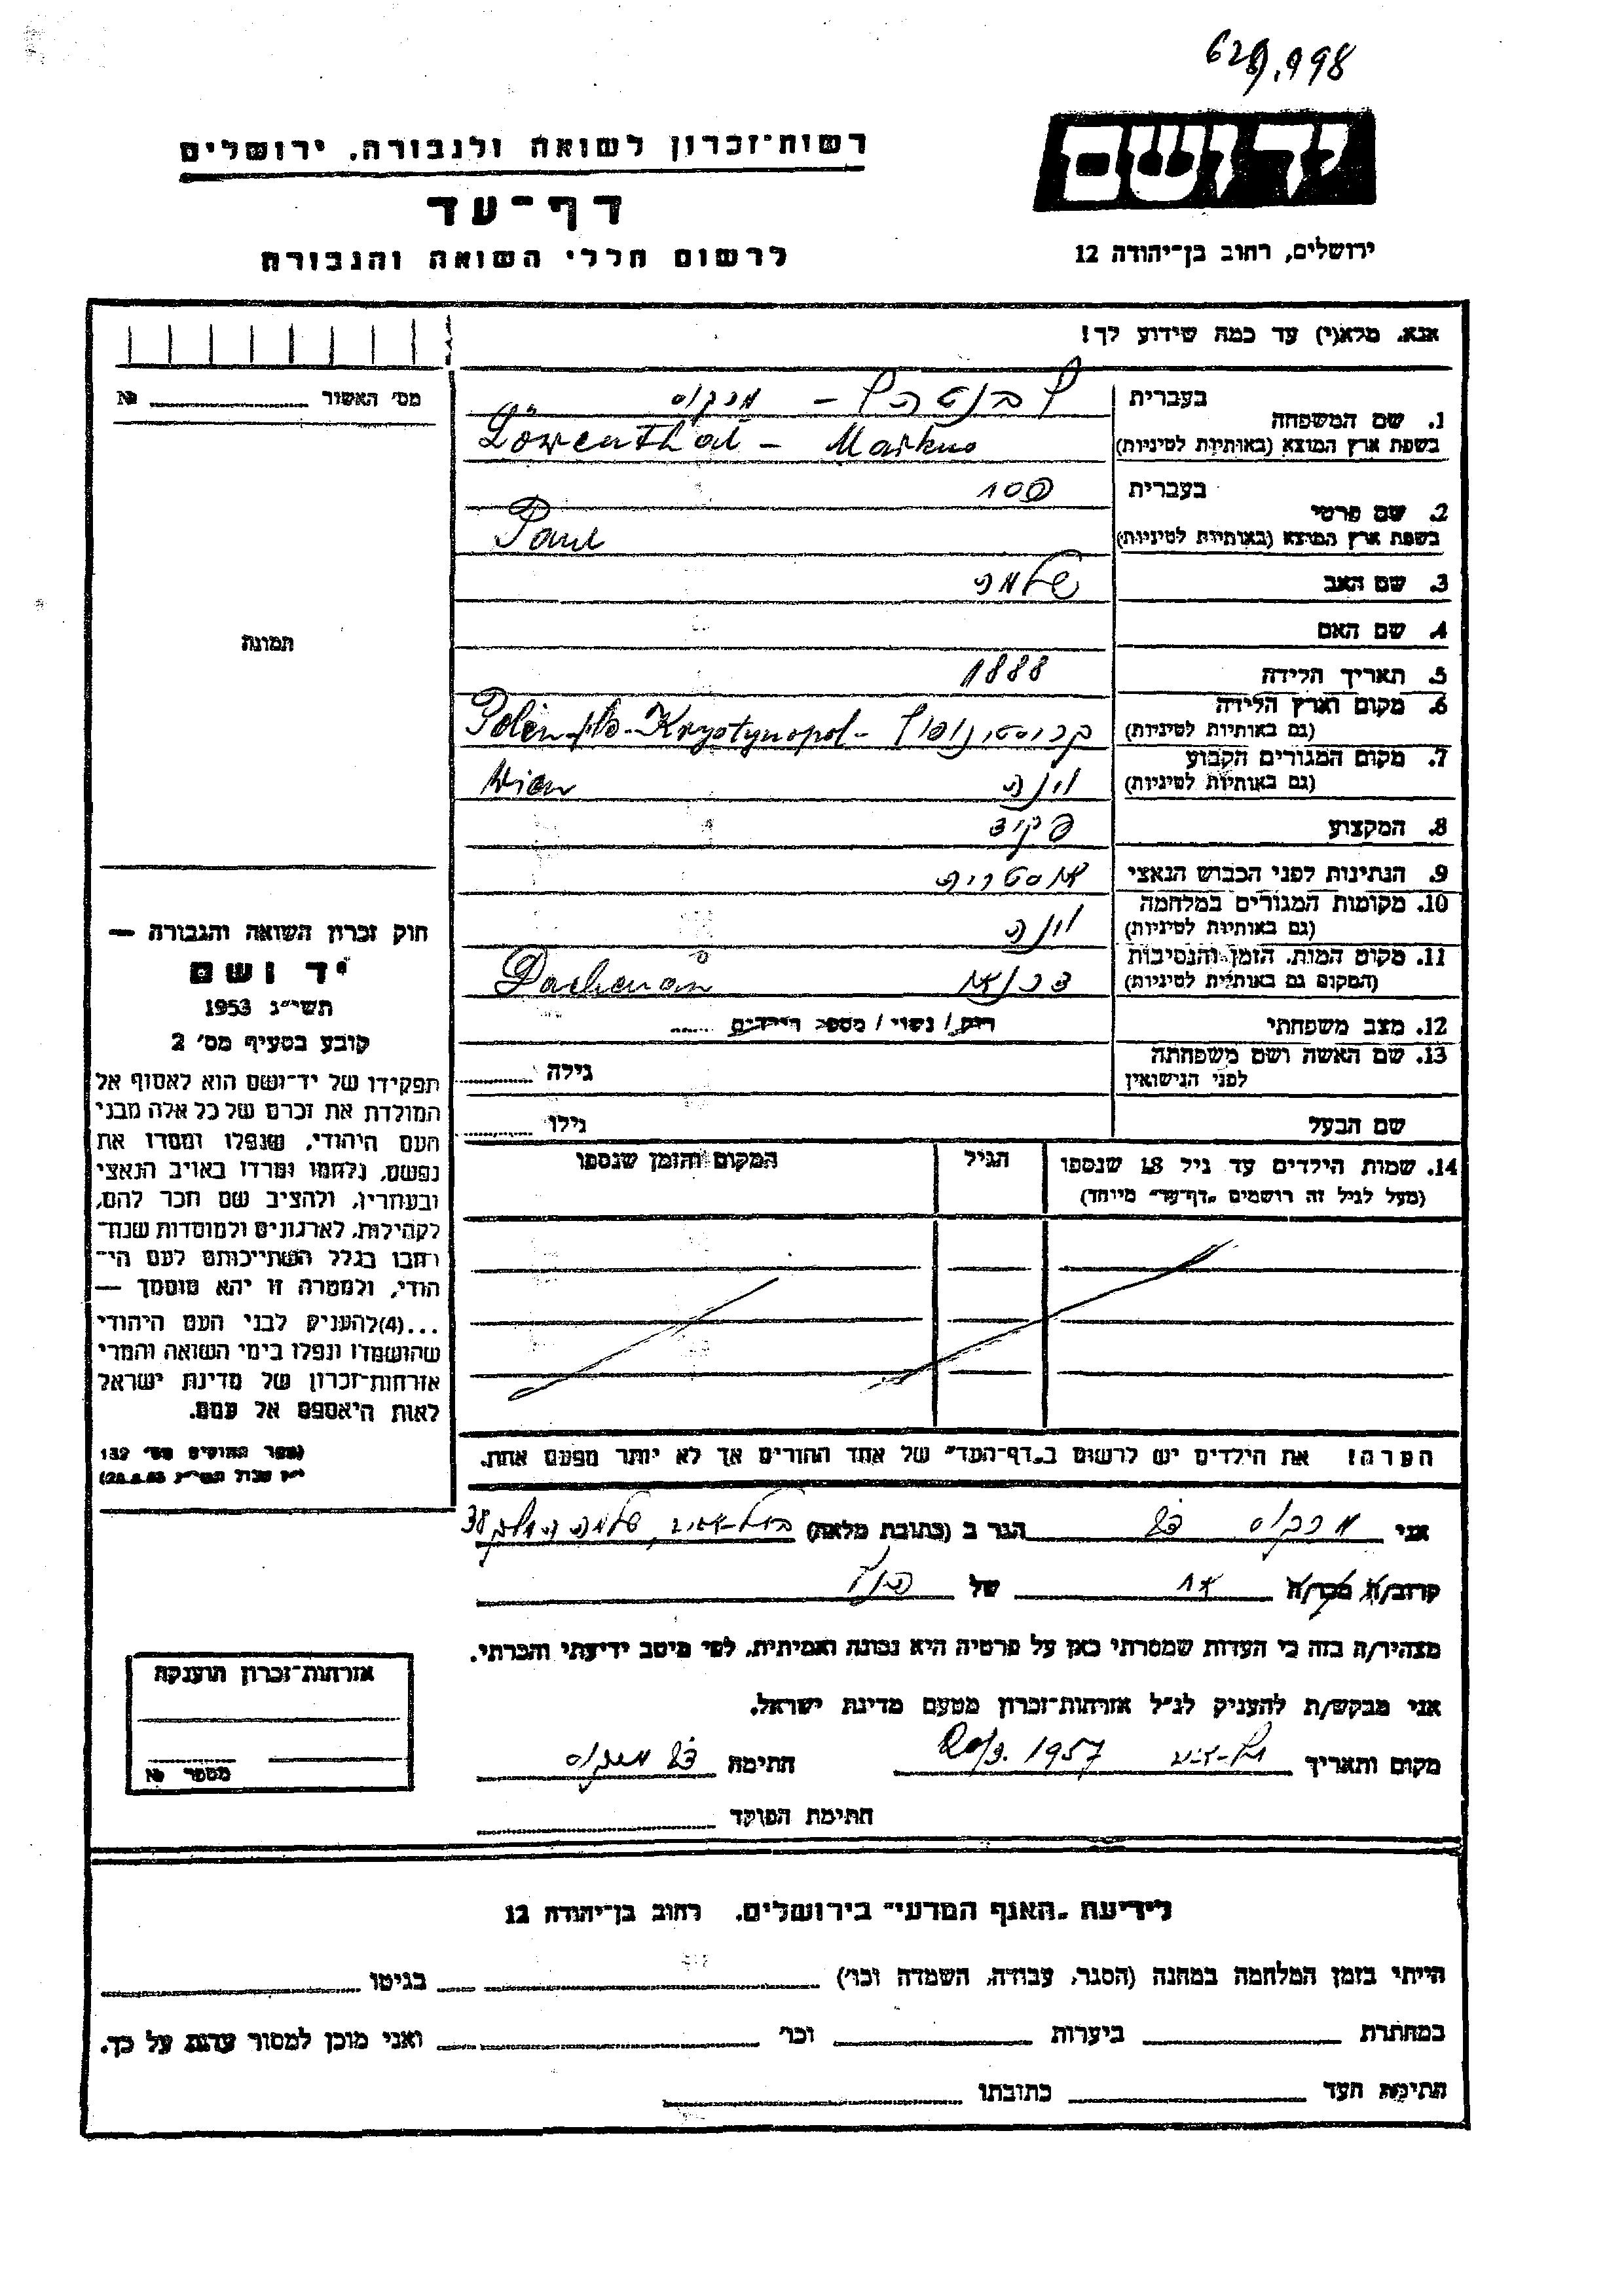 629.998
יד ושם
רשות־זכרון לשואה ולגבורה. ירושלים
דף־עד
לרשום חללי השואה והגבורה
ירושלים, רחוב בן־יהודה 12
אנא. מלא(י) עד כמה שידוע לך!
מס׳ האשור № 
1. שם המשפחה
בעברית
לבנטהל - מרקוס
בשפת ארץ המוצא (באותיות לטיניות)
Löwenthal - Markus
2. שם פרטי
בעברית
בשפת ארץ המוצא (באותיות לטיניות)
Paul
3. שם האב שלמה
4. שם האם
5. תאריך הלידה 1888
6. מקום וארץ הלידה
(גם באותיות לטיניות)
קריסטינופול - Krystynopol - פולין Polen
7. מקום המגורים הקבוע
(גם באותיות לטיניות)
וינה Wien
8. המקצוע פקיד
9. הנתינות לפני הכבוש הנאצי אוסטרית
10. מקומות המגורים במלחמה
(גם באותיות לטיניות)
וינה
11. מקום המות. הזמן והנסיבות
(המקום גם באותיות לטיניות)
דכאו Dachau
12. מצב משפחתי רוק / נשוי / מספר הילדים
13. שם האשה ושם משפחתה
לפני הנישואין
גילה
שם הבעל גילו
14. שמות הילדים עד גיל 18 שנספו
(מעל לגיל זה רושמים „דף־עד״ מיוחד)
הגיל
המקום והזמן שנספו
הערה! את הילדים יש לרשום ב„דף־העד״ של אחד ההורים אך לא יותר מפעם אחת.
תמונה
חוק זכרון השואה והגבורה —
יד ושם
תשי״ג 1953
קובע בסעיף מס׳ 2
תפקידו של יד־ושם הוא לאסוף אל
המולדת את זכרם של כל אלה מבני
העם היהודי, שנפלו ומסרו את
נפשם, נלחמו ומרדו באויב הנאצי
ובעוזריו, ולהציב שם וזכר להם,
לקהילות, לארגונים ולמוסדות שנח־
רבו בגלל השתייכותם לעם הי־
הודי, ולמטרה זו יהא מוסמך —
...(4) להעניק לבני העם היהודי
שהושמדו ונפלו בימי השואה והמרי
אזרחות־זכרון של מדינת ישראל
לאות היאספם אל עמם.
(ספר החוקים מס׳ 132
אני מרקוס הגר ב (כתובת מלאה) בתל-אביב, שלמה המלך 38
קרוב/ה מכר/ה אח של הנ״ל
מצהיר/ה בזה כי העדות שמסרתי כאן על פרטיה היא נכונה ואמיתית, לפי מיטב ידיעתי והכרתי.
אני מבקש/ת להעניק לנ״ל אזרחות־זכרון מטעם מדינת ישראל.
מקום ותאריך תל-אביב 1957 חתימה מרקוס
חתימת הפוקד
אזרחות־זכרון הוענקה
מספר №
לידיעת „האגף המדעי״ בירושלים. רחוב בן־יהודה 12
הייתי בזמן המלחמה במחנה (הסגר, עבודה, השמדה וכו׳) בגיטו
במחתרת ביערות וכו׳ ואני מוכן למסור עדות על כך.
חתימת העד כתובתו